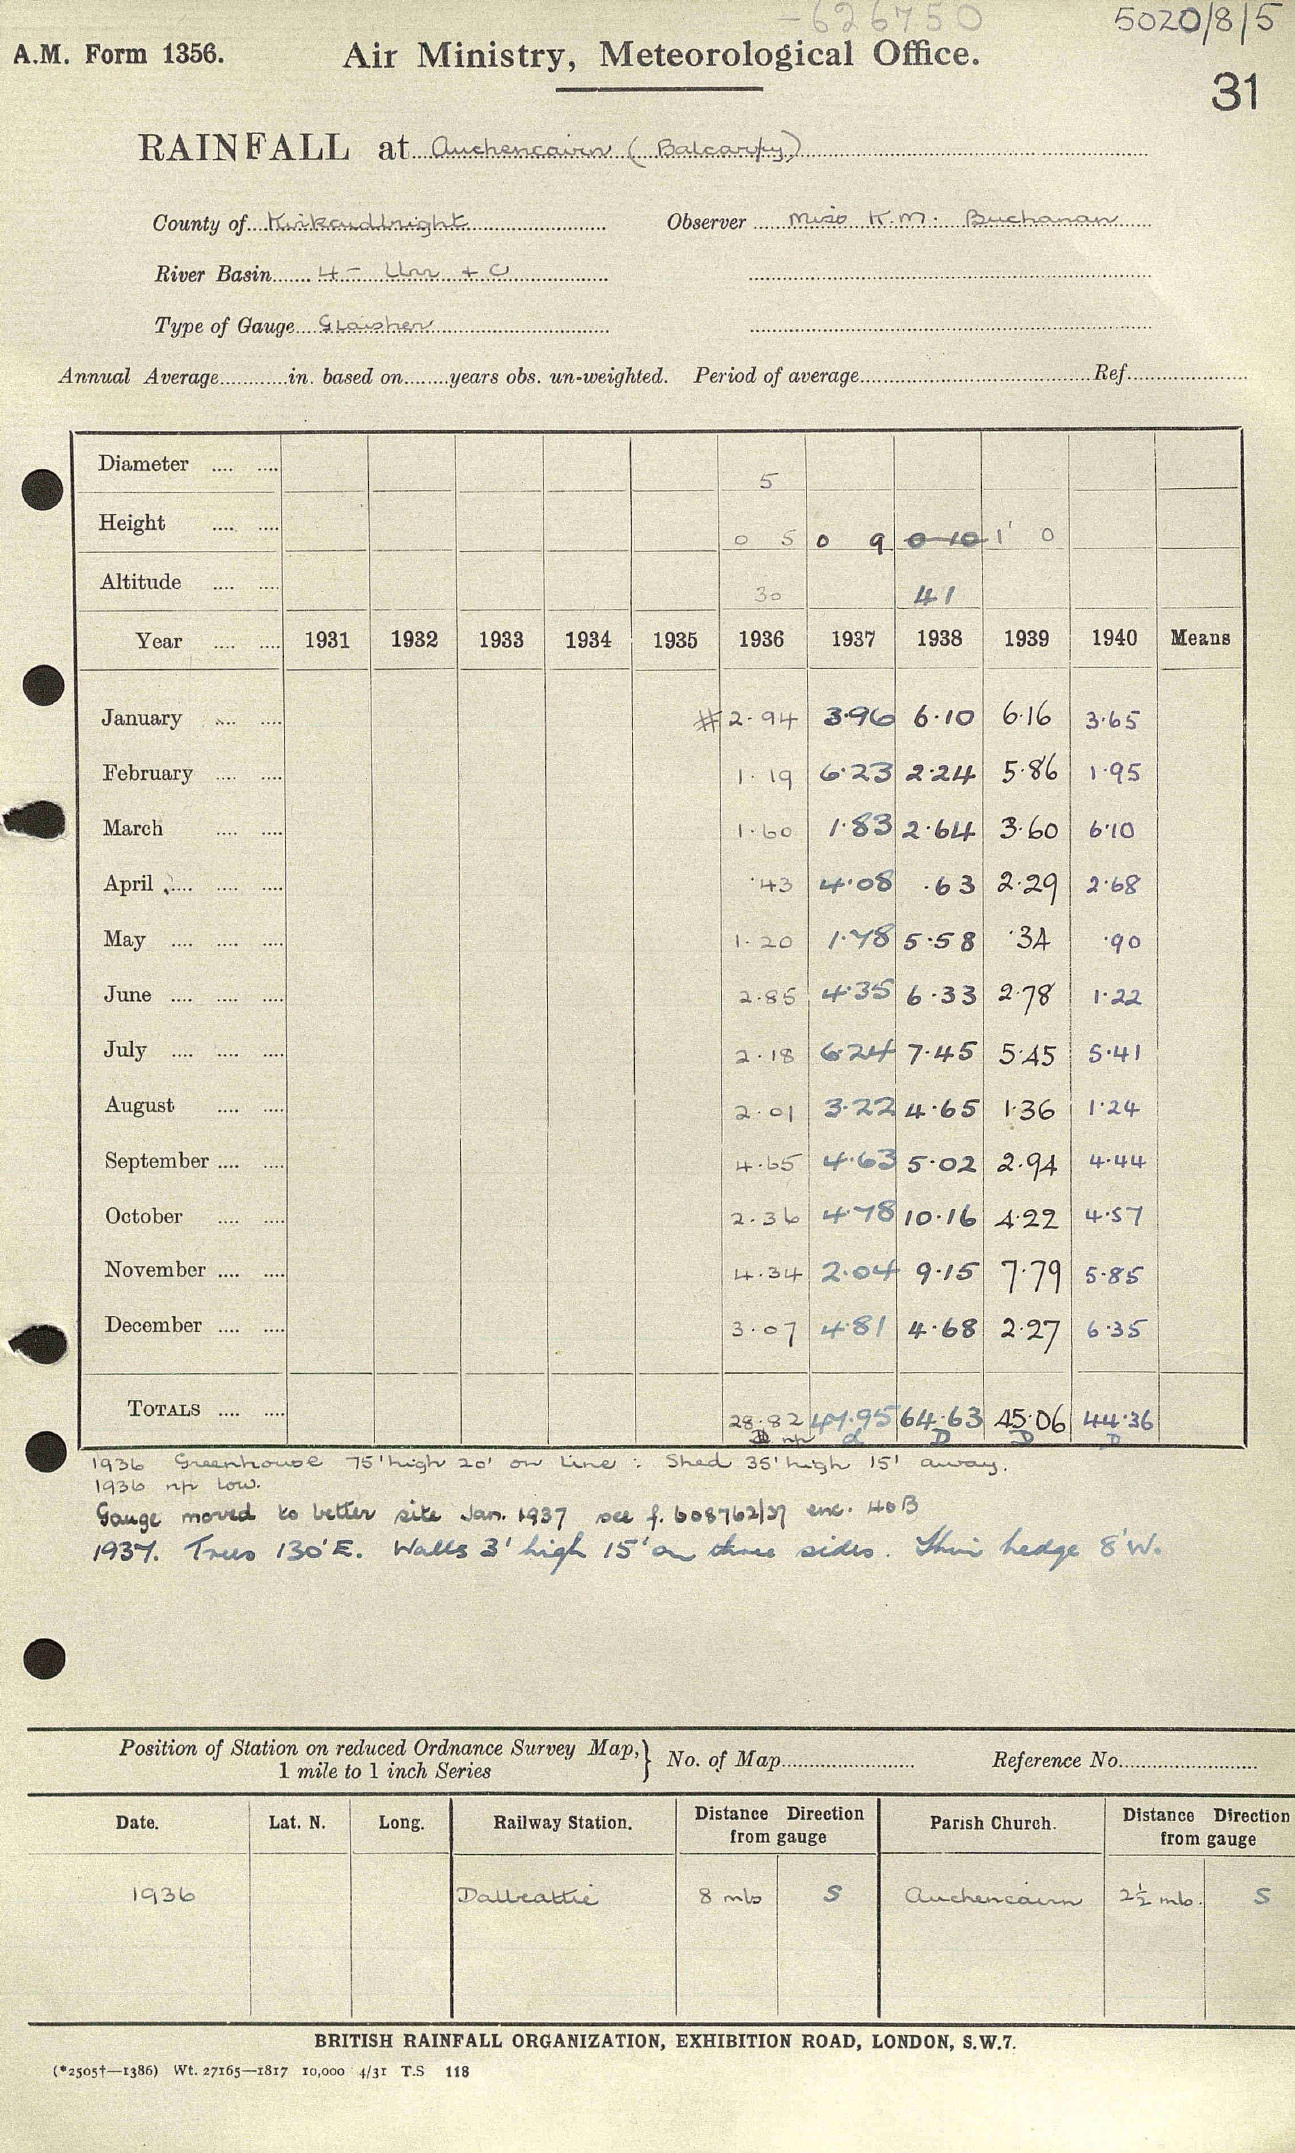 -626750 5020/8/5
A.M. Form 1356. Air Ministry, Meteorological Office.
31
RAINFALL at Auchencairn (Balcarry)
County of Kirkcudbright Observer Miss K.M. Buchanan
River Basin 4 - Urr + C
Type of Gauge Glaisher
Annual Average............in. based on........years obs. un-weighted. Period of average........................................Ref.....................
Diameter .... .... 5
Height .... .... 0 5 0 9 0 10 1' 0
Altitude .... .... 30 41
Year .... .... 1931 1932 1933 1934 1935 1936 1937 1938 1939 1940 Means
January .... .... #2.94 3.96 6.10 6.16 3.65
February .... .... 1.19 6.23 2.24 5.86 1.95
March .... .... 1.60 1.83 2.64 3.60 6.10
April .... .... .... .43 4.08 .63 2.29 2.68
May .... .... .... 1.20 1.78 5.58 .34 .90
June .... .... .... 2.85 4.35 6.33 2.78 1.22
July .... .... .... 2.18 6.24 7.45 5.45 5.41
August .... .... 2.01 3.22 4.65 1.36 1.24
September .... .... 4.65 4.63 5.02 2.94 4.44
October .... .... 2.36 4.78 10.16 4.22 4.57
November .... .... 4.34 2.04 9.15 7.79 5.85
December .... .... 3.07 4.81 4.68 2.27 6.35
TOTALS .... .... 28.82 47.95 64.63 45.06 44.36
D np d D D D
1936 Greenhouse 75' high 20' on line : Shed 35' high 15' away.
1936 np low.
Gauge moved to better site Jan. 1937 see f. 608762/37 enc. 40B
1937. Trees 130' E. Walls 3' high 15' on three sides. Thin hedge 8' W.
Position of Station on reduced Ordnance Survey Map, } No. of Map........................ Reference No.........................
1 mile to 1 inch Series
Date. Lat. N. Long. Railway Station. Distance Direction Parish Church. Distance Direction
from gauge from gauge
1936 Dalbeattie 8 mls S Auchencairn 2½ mls. S
BRITISH RAINFALL ORGANIZATION, EXHIBITION ROAD, LONDON, S.W.7.
(*2505†—1386) Wt. 27165—1817 10,000 4/31 T.S 118